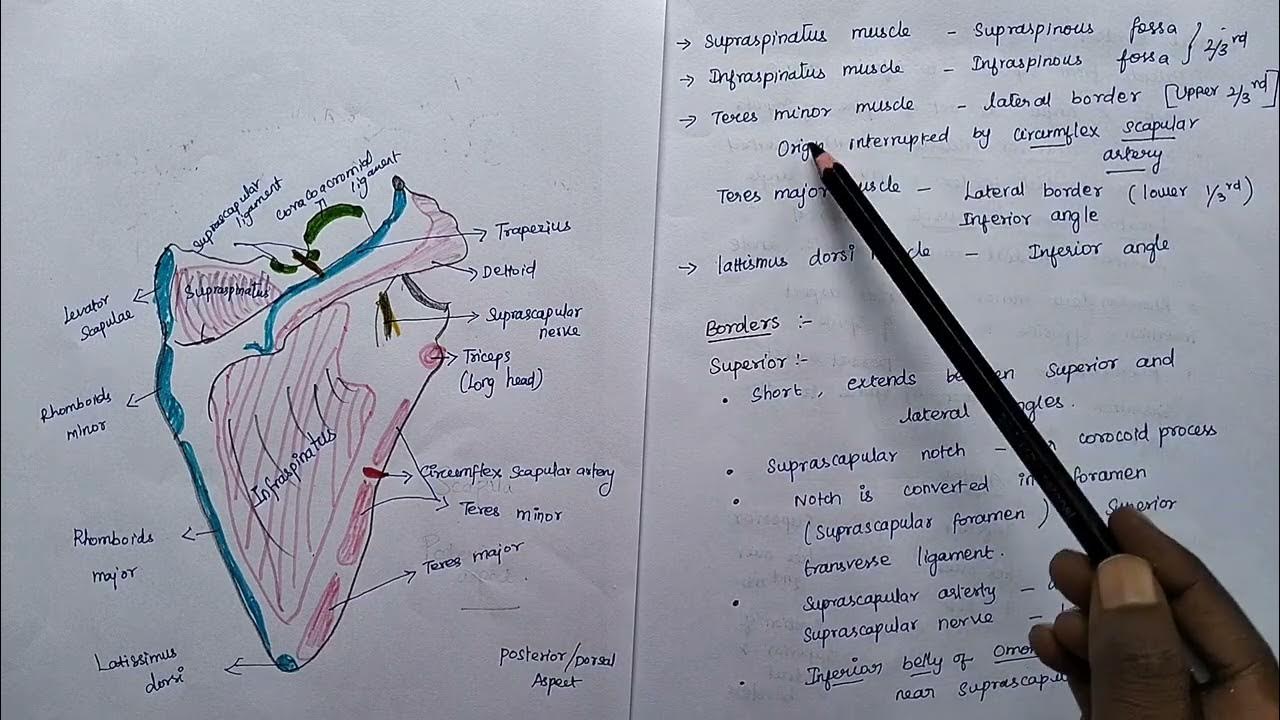 Suprascapular
ligament
coracoacromial
ligament
Trapezius
Deltoid
Supraspinatus
Levator
Scapulae
Suprascapular
nerve
Triceps
(Long head)
Rhomboids
minor
Infraspinatus
Circumflex scapular artery
Teres minor
Rhomboids
major
Teres major
Latissimus
dorsi
Posterior/Dorsal
Aspect
→ Supraspinatus muscle - Supraspinous fossa } 2/3rd
→ Infraspinatus muscle - Infraspinous fossa
→ Teres minor muscle - lateral border [Upper 2/3rd]
interrupted by circumflex scapular
artery
Teres major - Lateral border (lower 1/3rd)
Inferior angle
→ lattismus dorsi - Inferior angle
Borders :-
Superior :-
• Short, extends Superior and
lateral
• Suprascapular notch - corocoid process
• Notch is converted foramen
(Suprascapular foramen) Superior
transverse ligament.
• Suprascapular arterty -
Suprascapular nerve -
• Inferior belly of
near